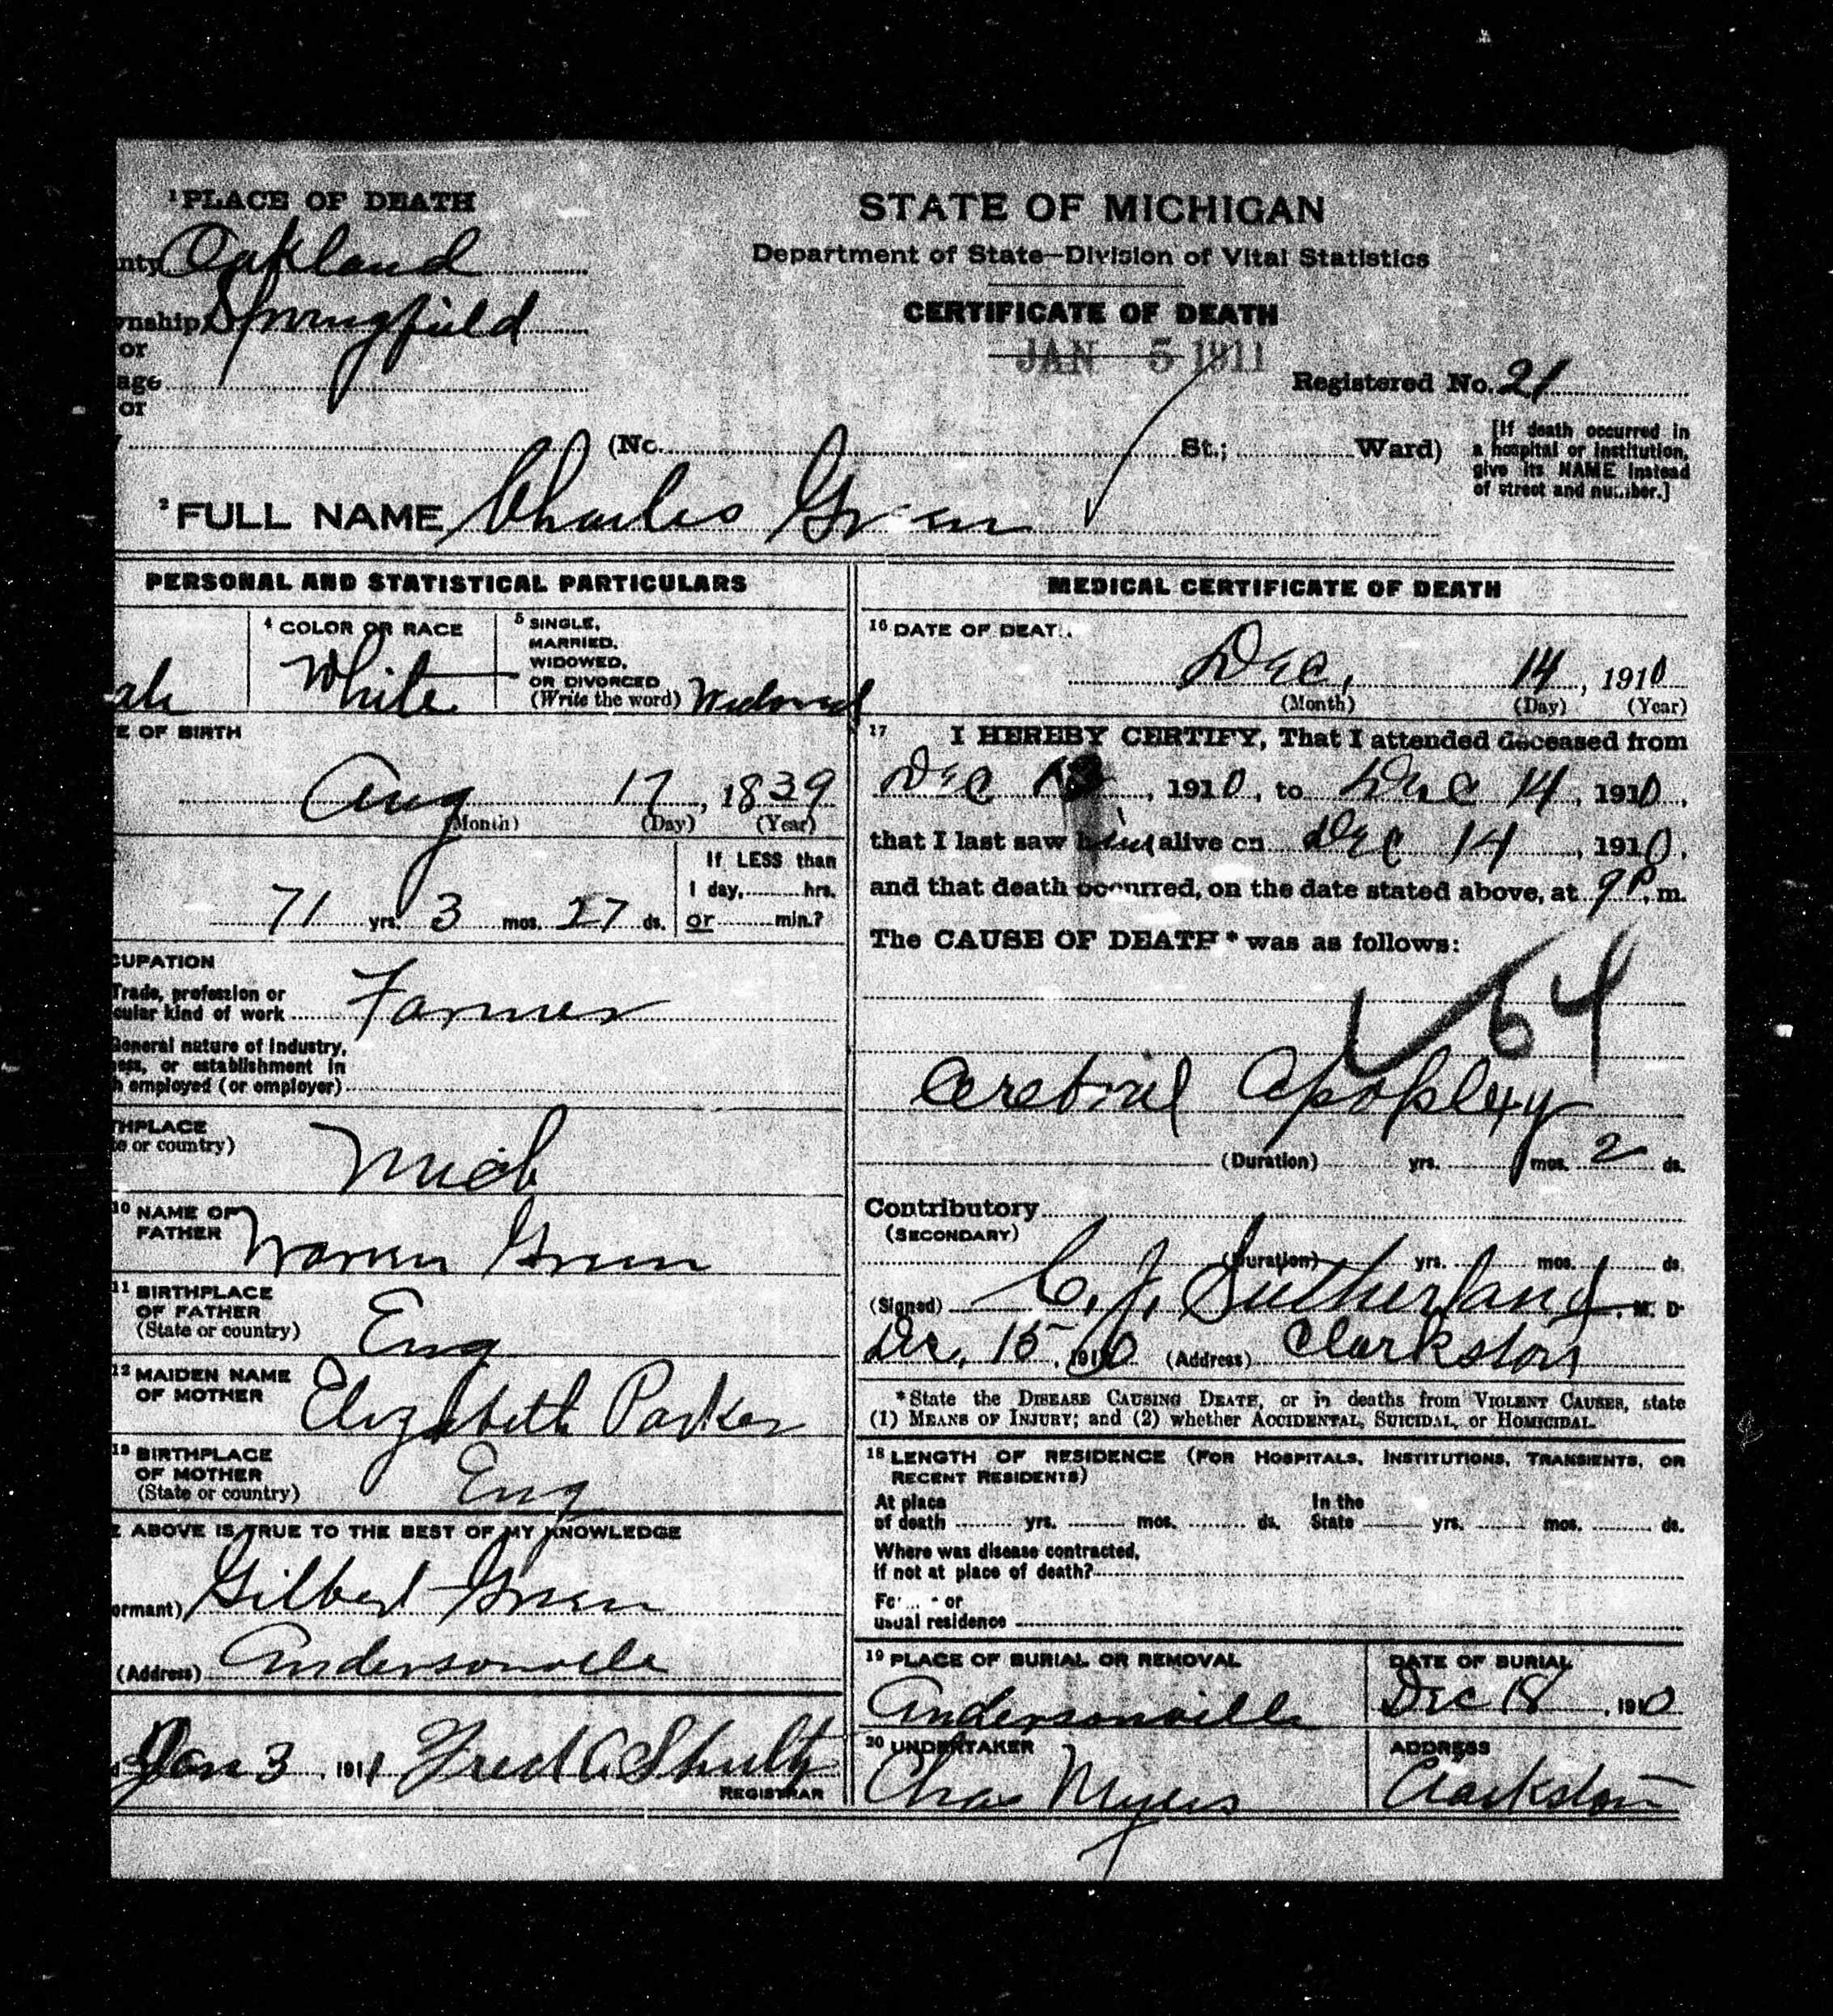 1 PLACE OF DEATH
nty Oakland
nship Springfield
or
age
or
STATE OF MICHIGAN
Department of State—Division of Vital Statistics
CERTIFICATE OF DEATH
JAN 5 1911
Registered No. 21
(No. St.; Ward)
[If death occurred in
a hospital or institution,
give its NAME instead
of street and number.]
2 FULL NAME Charles Green
PERSONAL AND STATISTICAL PARTICULARS
4 COLOR OR RACE
White
5 SINGLE,
MARRIED,
WIDOWED,
OR DIVORCED
(Write the word) Widowed
ale
E OF BIRTH
Aug 17, 1839
(Month) (Day) (Year)
71 yrs. 3 mos. 27 ds.
If LESS than
1 day, hrs.
or min.?
CUPATION
Trade, profession or
cular kind of work Farmer
General nature of industry,
ness, or establishment in
h employed (or employer)
THPLACE
te or country) Mich
10 NAME OF
FATHER Warren Green
11 BIRTHPLACE
OF FATHER
(State or country) Eng
12 MAIDEN NAME
OF MOTHER Elizabeth Parker
13 BIRTHPLACE
OF MOTHER
(State or country) Eng
E ABOVE IS TRUE TO THE BEST OF MY KNOWLEDGE
ormant) Gilbert Green
(Address) Andersonville
Jan 3, 1911 Fred A Shultz
REGISTRAR
MEDICAL CERTIFICATE OF DEATH
16 DATE OF DEAT
Dec, 14, 1910
(Month) (Day) (Year)
17 I HEREBY CERTIFY, That I attended deceased from
Dec 13, 1910, to Dec 14, 1910,
that I last saw him alive on Dec 14, 1910,
and that death occurred, on the date stated above, at 9 P. m.
The CAUSE OF DEATH* was as follows:
64
Cerebral Apoplexy
(Duration) yrs. mos. 2 ds.
Contributory
(SECONDARY)
(Duration) yrs. mos. ds.
(Signed) C. J. Sutherland, M. D.
Dec, 15, 1910 (Address) Clarkston
*State the DISEASE CAUSING DEATH, or in deaths from VIOLENT CAUSES, state
(1) MEANS OF INJURY; and (2) whether ACCIDENTAL, SUICIDAL, or HOMICIDAL.
18 LENGTH OF RESIDENCE (FOR HOSPITALS, INSTITUTIONS, TRANSIENTS, OR
RECENT RESIDENTS)
At place
of death yrs. mos. ds.
In the
State yrs. mos. ds.
Where was disease contracted,
if not at place of death?
or
usual residence
19 PLACE OF BURIAL OR REMOVAL
Andersonville
DATE OF BURIAL
Dec 18, 1910
20 UNDERTAKER
Chas Myers
ADDRESS
Clarkston